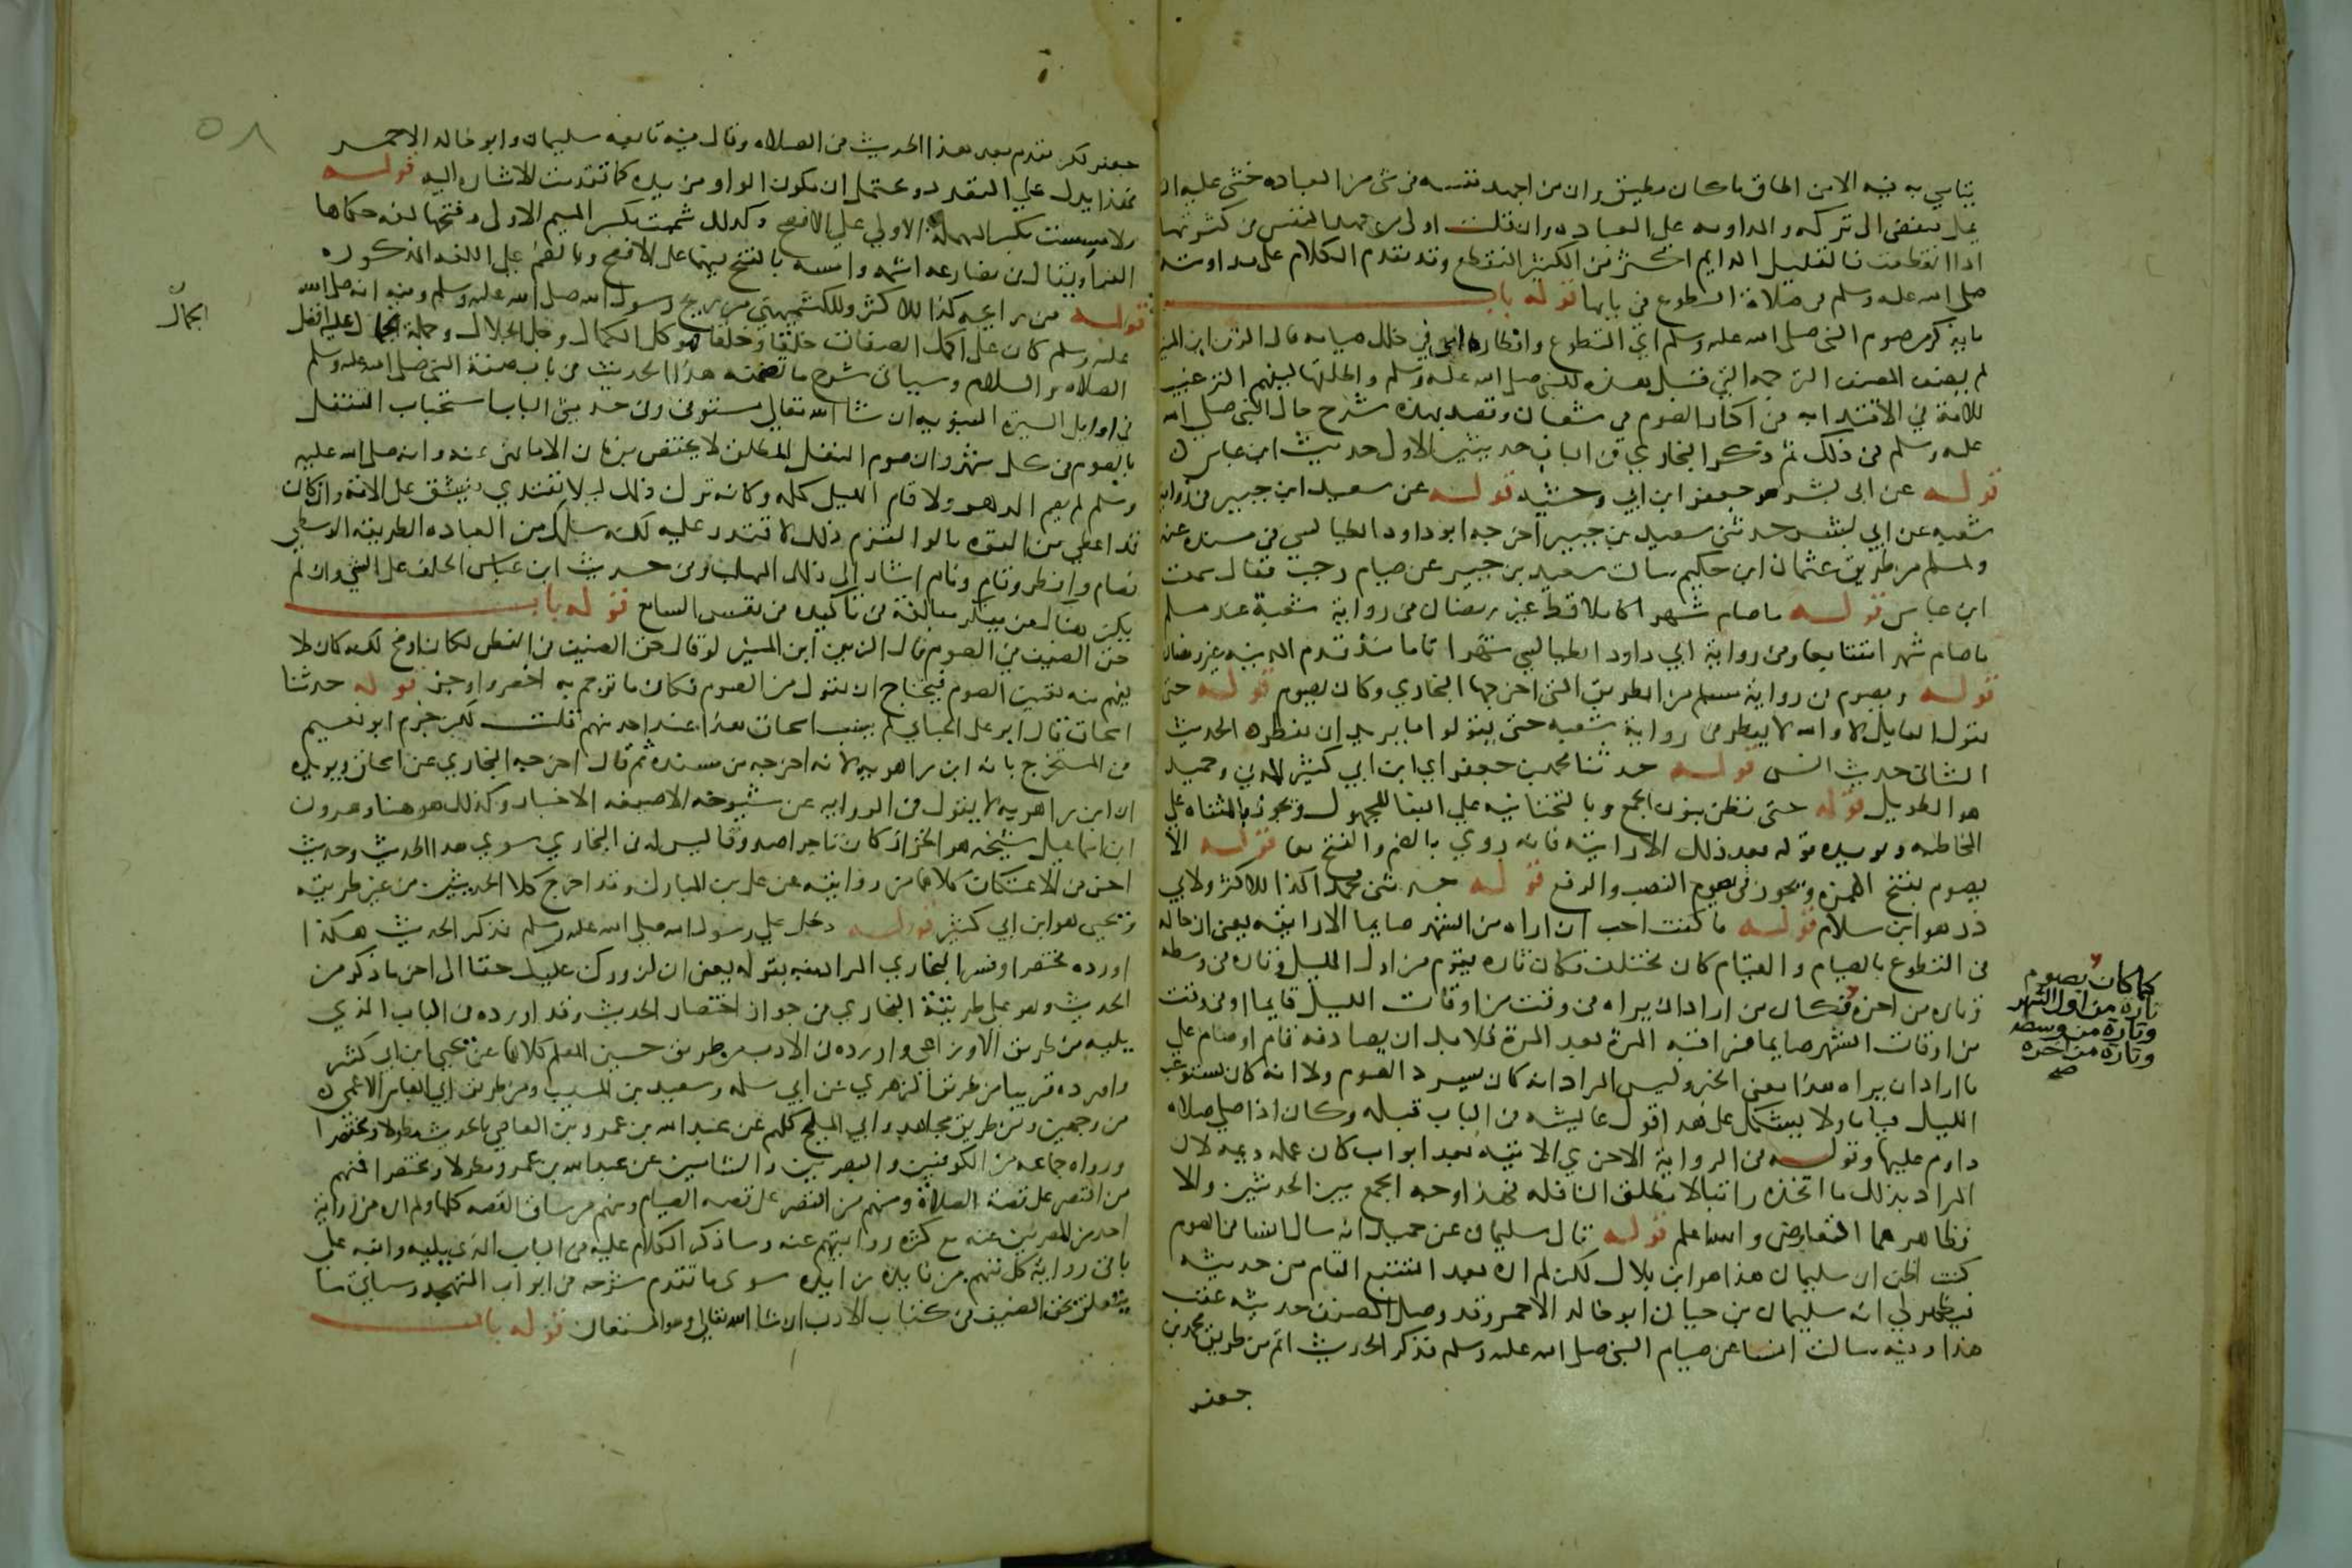 يتاسي به فيه الا من اطاق ما كان يطيق وان من اجهد نفسه في شي من العباده خشي عليه ان
يمل فيفضي الى تركه والمداومه على العباده وان قلت اولى من جهد النفس في كثرتها
اذا انقطعت فالقليل الدايم افضل من الكثير المنقطع وقد تقدم الكلام على مداومته
صلى الله عليه وسلم في صلاة التطوع في بابها قوله باب
ما يذكر من صوم النبي صلى الله عليه وسلم اي التطوع وافطاره اي في خلل صيامه قال الزين ابن المنير
لم يضف المصنف الترجمه التي قبل هذه للنبي صلى الله عليه وسلم واطلقها ليفهم الترغيب
للامة في الاقتدا به في اكثار الصوم في شعبان وقصد بهذه شرح حال النبي صلى الله
عليه وسلم في ذلك ثم ذكر البخاري في الباب حديثين الاول حديث ابن عباس
قوله عن ابي بشر هو جعفر ابن ابي وحشيه قوله عن سعيد ابن جبير في رواية
شعبه عن ابي بشر حدثني سعيد بن جبير اخرجه ابو داود الطيالسي في مسنده عنه
ولمسلم من طريق عثمان ابن حكيم سالت سعيد بن جبير عن صيام رجب فقال سمعت
ابن عباس قوله ما صام شهرا كاملا قط غير رمضان في رواية شعبة عند مسلم
ما صام شهرا متتابعا وفي رواية ابي داود الطيالسي شهرا تاما منذ قدم المدينه غير رمضان
قوله ويصوم في رواية مسلم من الطريق التي اخرجها البخاري وكان يصوم قوله حتى
يقول القايل لا والله لا يفطر في رواية شعبه حتى يقولوا ما يريد ان يفطره الحديث
الثاني حديث انس قوله حدثنا محمد بن جعفر اي ابن ابي كثير المدني وحميد
هو الطويل قوله حتى نظن بنون الجمع وبالتحتانيه على البنا للمجهول ويجوز بالمثناه على
المخاطبه ويويده قوله بعد ذلك الا رايته فانه روي بالضم والفتح معا قوله الا
يصوم بفتح الهمزه ويجوز في يصوم النصب والرفع قوله حدثني محمد كذا للاكثر ولابي
ذر هو ابن سلام قوله ما كنت احب ان اراه من الشهر صايما الا رايته يعني ان حاله
في التطوع بالصيام والقيام كان يختلف فكان تاره يقوم من اول الليل وتاره في وسطه
وتاره من اخره فكان من اراد ان يراه في وقت من اوقات الليل قايما او في وقت
من اوقات الشهر صايما فراقبه المرة بعد المرة فلا بد ان يصادفه قام او صام على
ما اراد ان يراه هذا معنى الخبر وليس المراد انه كان يسرد الصوم ولا انه كان يستوعب
الليل قياما ولا يشكل على هذا قول عايشه في الباب قبله وكان اذا صلى صلاه
داوم عليها وقوله في الرواية الاخرى الاتيه بعد ابواب كان عمله ديمه لان
المراد بذلك ما اتخذه راتبا لا مطلق النافله فهذا وجه الجمع بين الحديثين والا
فظاهرهما التعارض والله اعلم قوله قال سليمان عن حميد انه سال انسا في الصوم
كنت اظن ان سليمان هذا هو ابن بلال لكن لم اره بعد التتبع التام من حديثه
فيظهر لي انه سليمان بن حيان ابو خالد الاحمر وقد وصل المصنف حديثه عقب
هذا وفيه سالت انسا عن صيام النبي صلى الله عليه وسلم فذكر الحديث اتم من طريق محمد بن
جعفر
كما كان يصوم
تارة من اول الشهر
وتارة من وسطه
وتارة من اخره
صح
٥٨
جعفر لكن تقدم بعد هذا الحديث في الصلاه وقال فيه تابعه سليمان وابو خالد الاحمر
فهذا يدل على التعدد ويحتمل ان يكون الواو مزيده كما تقدمت الاشاره اليه قوله
ولا مسست بكسر المهملة الاولى على الافصح وكذلك شممت بكسر الميم الاولى وفتحها لغه حكاها
الفرا ويقال في مضارعه اشمه وامسه بالفتح فيهما على الافصح وبالضم على اللغه المذكوره
قوله من رايحه كذا للاكثر وللكشميهني من ريح رسول الله صلى الله عليه وسلم وفيه انه صلى الله
عليه وسلم كان على اكمل الصفات خلقا وخلقا فهو كل الكمال وجل الجلال وجملة الجمال عليه افضل
الجمال
الصلاه والسلام وسياتي شرح ما تضمنه هذا الحديث في باب صفة النبي صلى الله عليه وسلم
في اوايل السيرة النبويه ان شا الله تعالى مستوفى وفي حديثي الباب استحباب التنفل
بالصوم في كل شهر وان صوم النفل المطلق لا يختص بزمان الا ما نهي عنه وانه صلى الله عليه
وسلم لم يصم الدهر ولا قام الليل كله وكانه ترك ذلك ليلا يقتدى به فيشق على الامة وان كان
قد اعطي من القوه ما لو التزم ذلك لاقتدر عليه لكنه سلك من العباده الطريقه الوسطى
فصام وافطر وقام ونام اشار الى ذلك المهلب وفي حديث ابن عباس الحلف على الشي وان لم
يكن هناك من ينكره مبالغة في تاكيده في نفس السامع قوله باب
حق الضيف في الصوم قال الزين ابن المنير لو قال حق الضيف في الفطر لكان اوضح لكنه كان لا
يفهم منه تعيين الصوم فيحتاج ان يقول من الصوم فكان ما ترجم به اخصر واوجز قوله حدثنا
اسحاق قال ابو علي الجياني لم ينسب اسحاق هذا عند احد منهم قلت لكن جزم ابو نعيم
في المستخرج بانه ابن راهويه لانه اخرجه من مسنده ثم قال اخرجه البخاري عن اسحاق ويويده
ان ابن راهويه لا يقول في الروايه عن شيوخه الا صيغه الاخبار وكذلك هو هنا وهرون
ابن اسماعيل شيخه هو الخزاز كان تاجرا صدوقا ليس له في البخاري سوى هذا الحديث وحديث
اخر في الاعتكاف كلاهما من روايته عن علي بن المبارك وقد اخرج كلا الحديثين من غير طريقه
ويحيى هو ابن ابي كثير قوله دخل علي رسول الله صلى الله عليه وسلم فذكر الحديث هكذا
اورده مختصرا وفسر البخاري المراد منه بقوله يعني ان لزورك عليك حقا الى اخر ما ذكر من
الحديث وهو على طريقة البخاري في جواز اختصار الحديث وقد اورده في الباب الذي
يليه من طريق الاوزاعي واورده في الادب من طريق حسين المعلم كلاهما عن يحيى ابن ابي كثير
واورده قريبا من طريق الزهري عن ابي سلمه وسعيد بن المسيب ومن طريق ابي العباس الاعمى
من وجهين ومن طريق مجاهد وابي المليح كلهم عن عبد الله بن عمرو بن العاصي بالحديث مطولا ومختصرا
ورواه جماعه من الكوفيين والبصريين والشاميين عن عبد الله بن عمرو مطولا ومختصرا فمنهم
من اقتصر على قصة الصلاة ومنهم من اقتصر على قصه الصيام ومنهم من ساق القصه كلها ولم اره من رواية
احد من المصريين عنه مع كثره روايتهم عنه وساذكر الكلام عليه في الباب الذي يليه وانبه على
ما في رواية كل منهم من فايده زايده سوى ما تقدم شرحه في ابواب التهجد وسياتي ما
يتعلق بحق الضيف في كتاب الادب ان شا الله تعالى وهو المستعان قوله باب